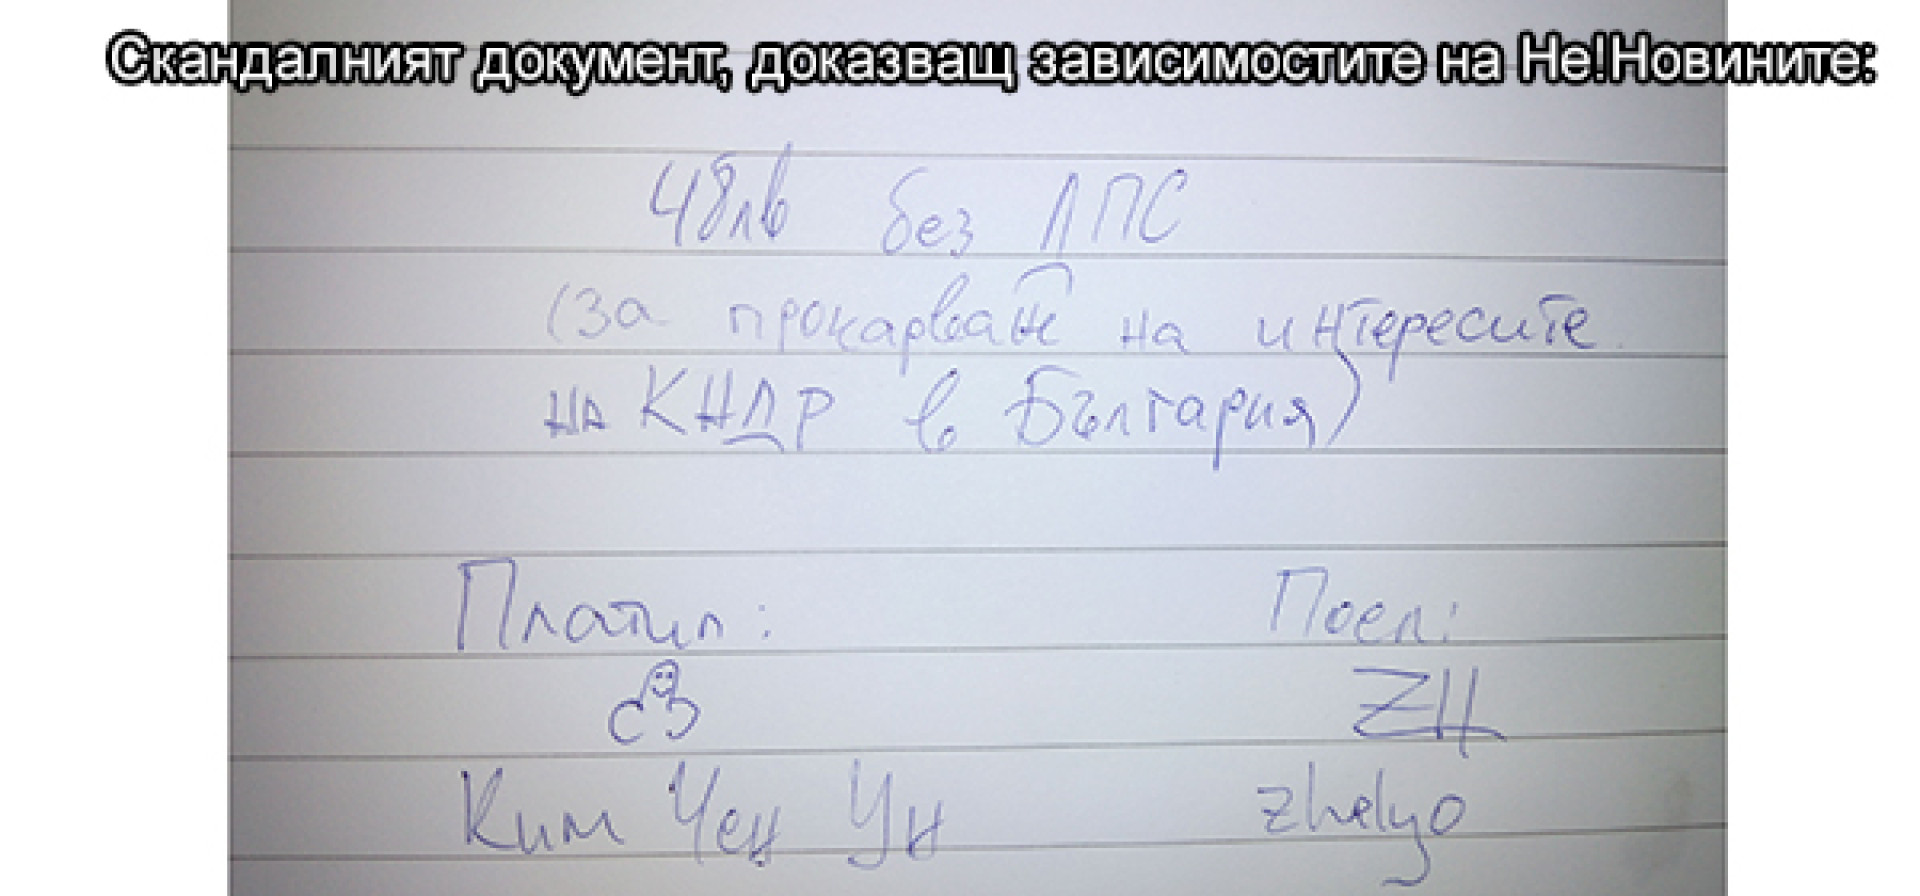 Скандалният документ, доказващ зависимостите на Не!Новините:
48лв без ДПС
(за прокарване на интересите
на КНДР в България)
Платил: Поел:
ZH
Ким Чен Ун zhelyo